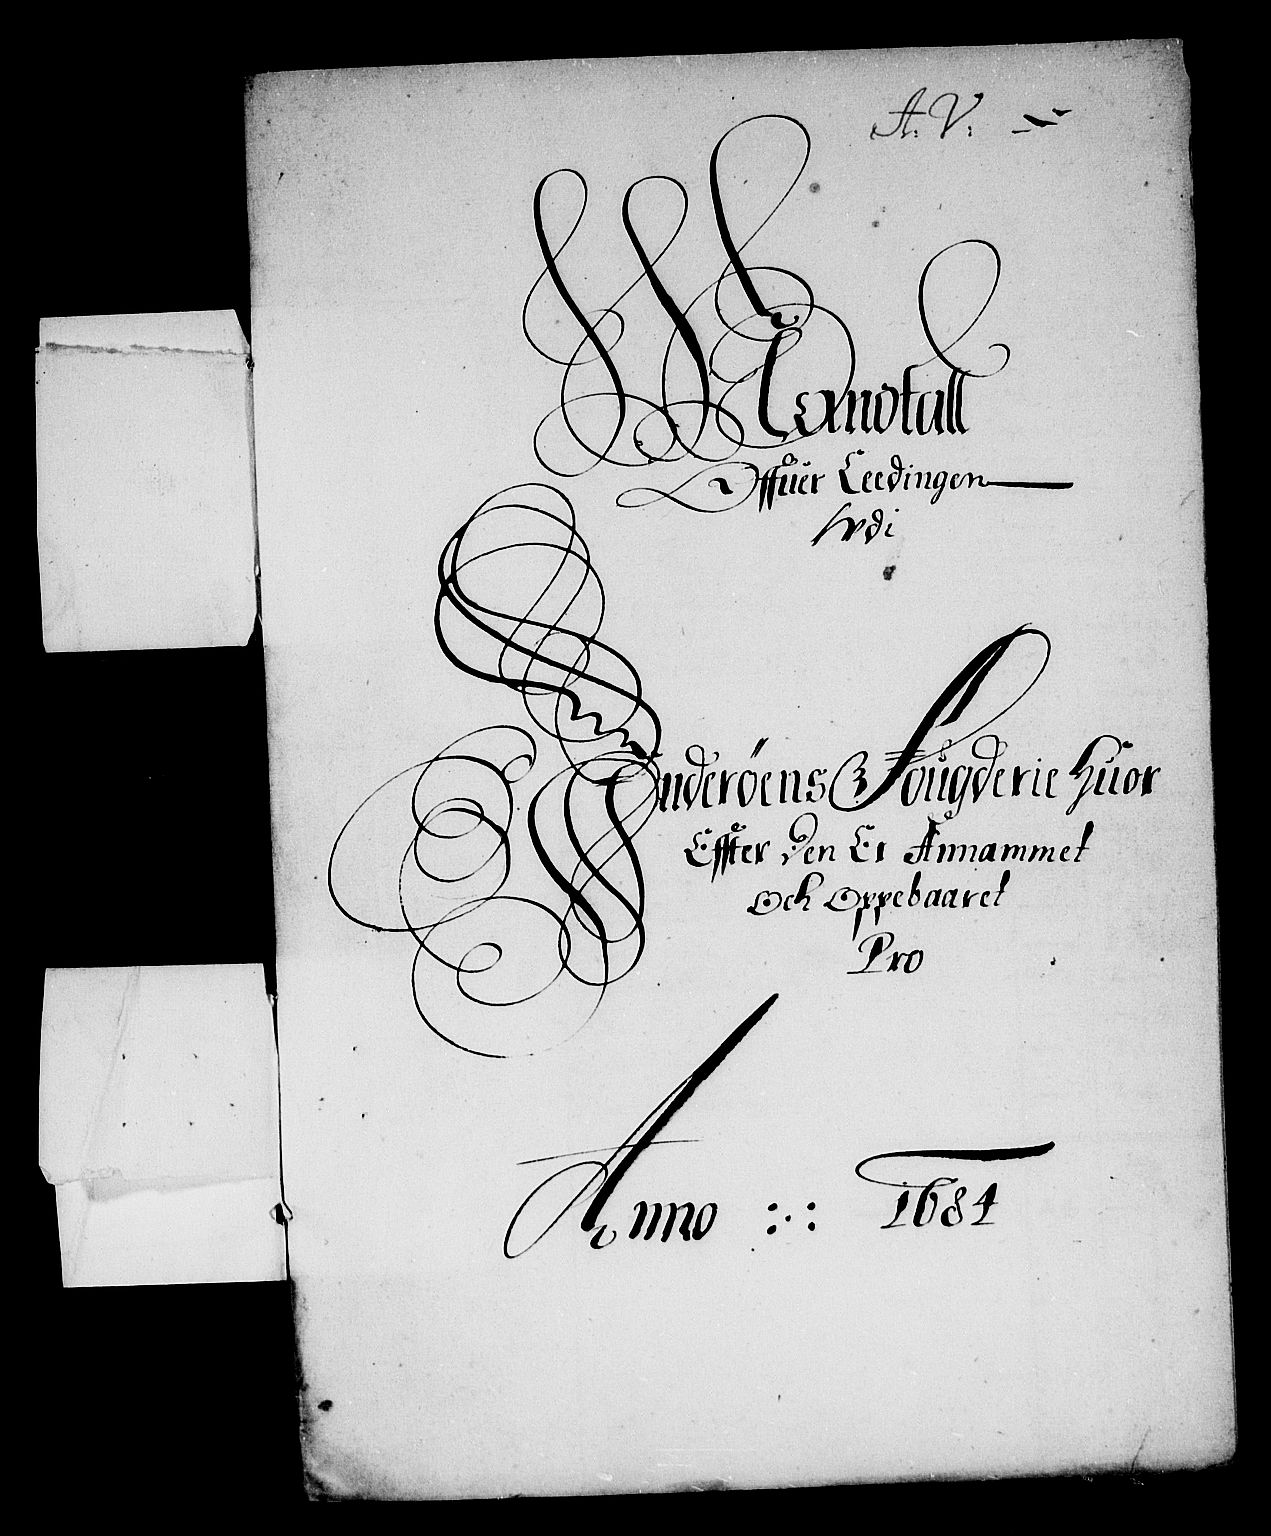 A: V:
Mandtall
Offuer Leedingen
Udi
Inderöens Fougderie huor
Effter den Er Annammet
och oppebaaret
Pro
Anno 1684